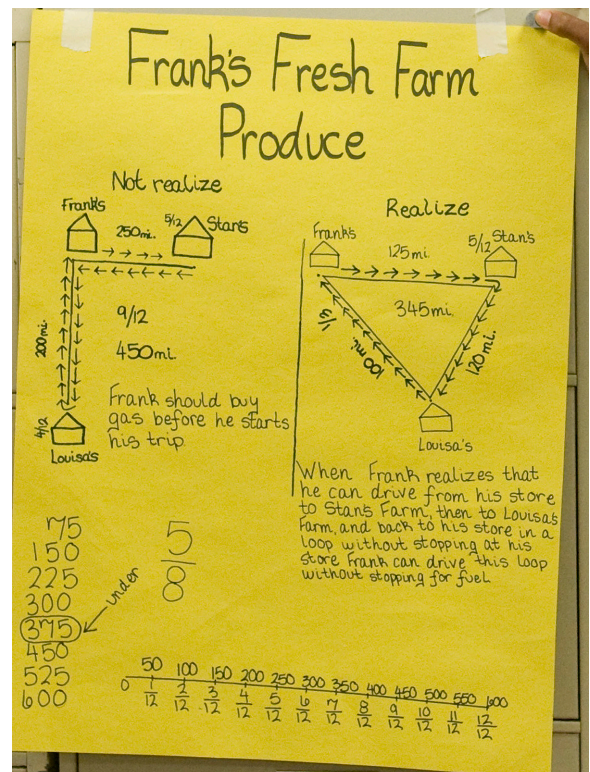 Frank's Fresh Farm
Produce
Not realize
Frank's
250mi.
5/12
Stan's
200mi.
9/12
450mi.
Frank should buy
gas before he starts
his trip
4/12
Louisa's
Realize
Frank's
125mi.
5/12
Stan's
345mi.
100mi.
120mi.
Louisa's
When Frank realizes that
he can drive from his store
to Stan's Farm, then to Louisa's
Farm, and back to his store in a
loop without stopping at his
store Frank can drive this loop
without stopping for fuel
75
150
225
300
375
450
525
600
under
5/8
50 100 150 200 250 300 350 400 450 500 550 600
0 1/12 2/12 3/12 4/12 5/12 6/12 7/12 8/12 9/12 10/12 11/12 12/12